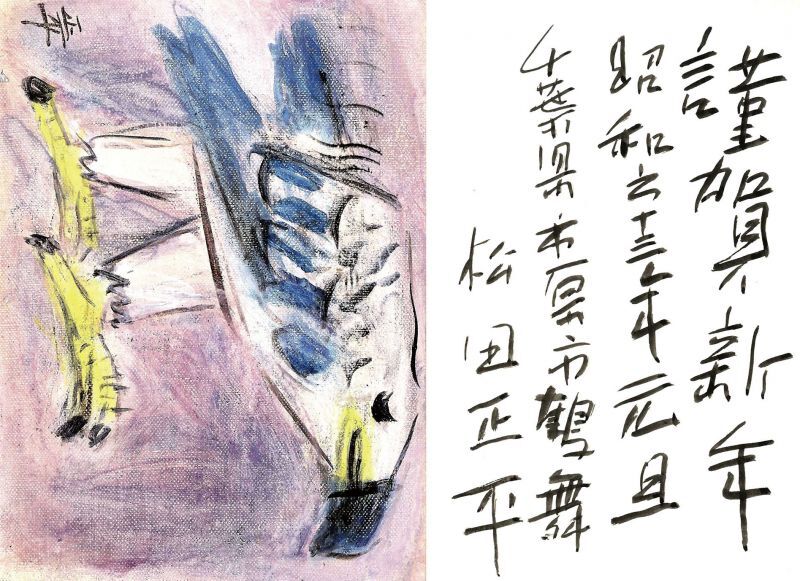 謹賀新年
昭和六十三年元旦
千葉県市原市鶴舞
松田正平